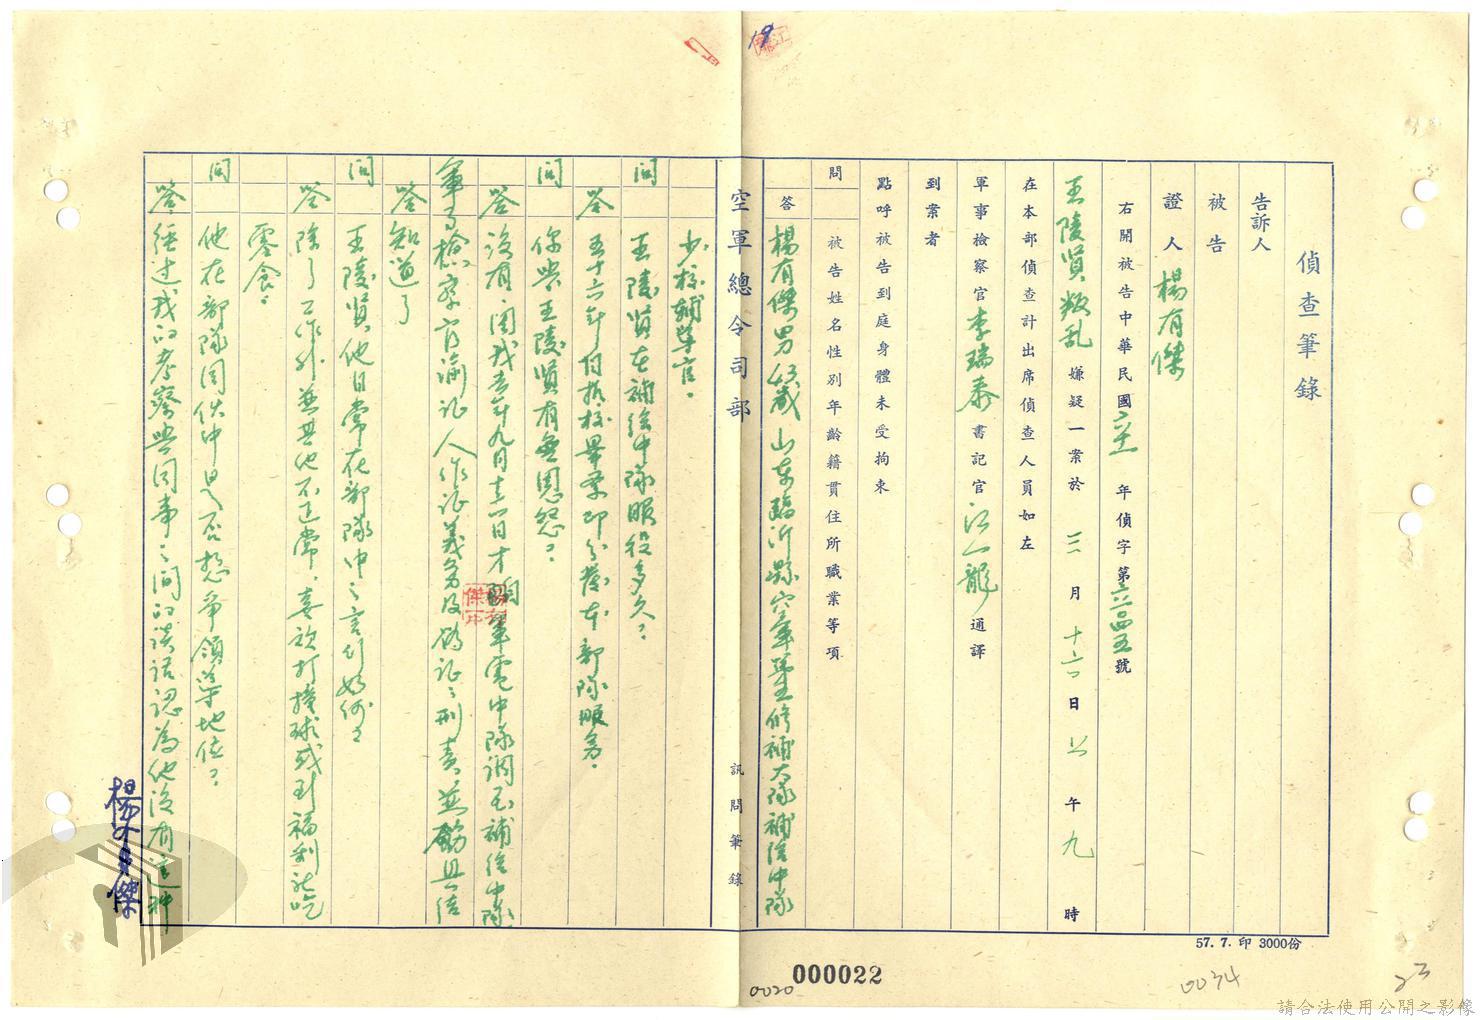 偵查筆錄
告訴人
被告
證人 楊有傑
右開被告中華民國 年偵字第 號
王陵賢叛乱嫌疑一案於 三月十六日上午九時
在本部偵查計出席偵查人員如左
軍事檢察官李瑞泰書記官江一龍通譯
到案者
點呼被告到庭身體未受拘束
問 被告姓名性別年齡籍貫住所職業等項
答 楊有傑男43歲山東臨沂縣空軍 修補大隊補給中隊
空軍總令司部 訊問筆錄
少校輔導官。
問 王陵賢在補給中隊服役多久?
答 五十六年 校畢業即分發本部隊服務。
問 你與王陵賢有無恩怨?
答 沒有,因我去年九月 日才 軍電中隊調至補給中隊
軍事檢察官諭証人作証義務及偽証之刑責並飭具結
答 知道了
問 王陵賢他日常在部隊中之言行如何?
答 除了工作外並其他不正常,喜歡打撞球或到福利社吃
零食。
問 他在部隊同伙中是否想爭領導地位?
答 經過我的考察與同事之間的談話認為他沒有這種
楊有傑
57.7.印 3000份
000022
0020
0034
23
19
請合法使用公開之影像